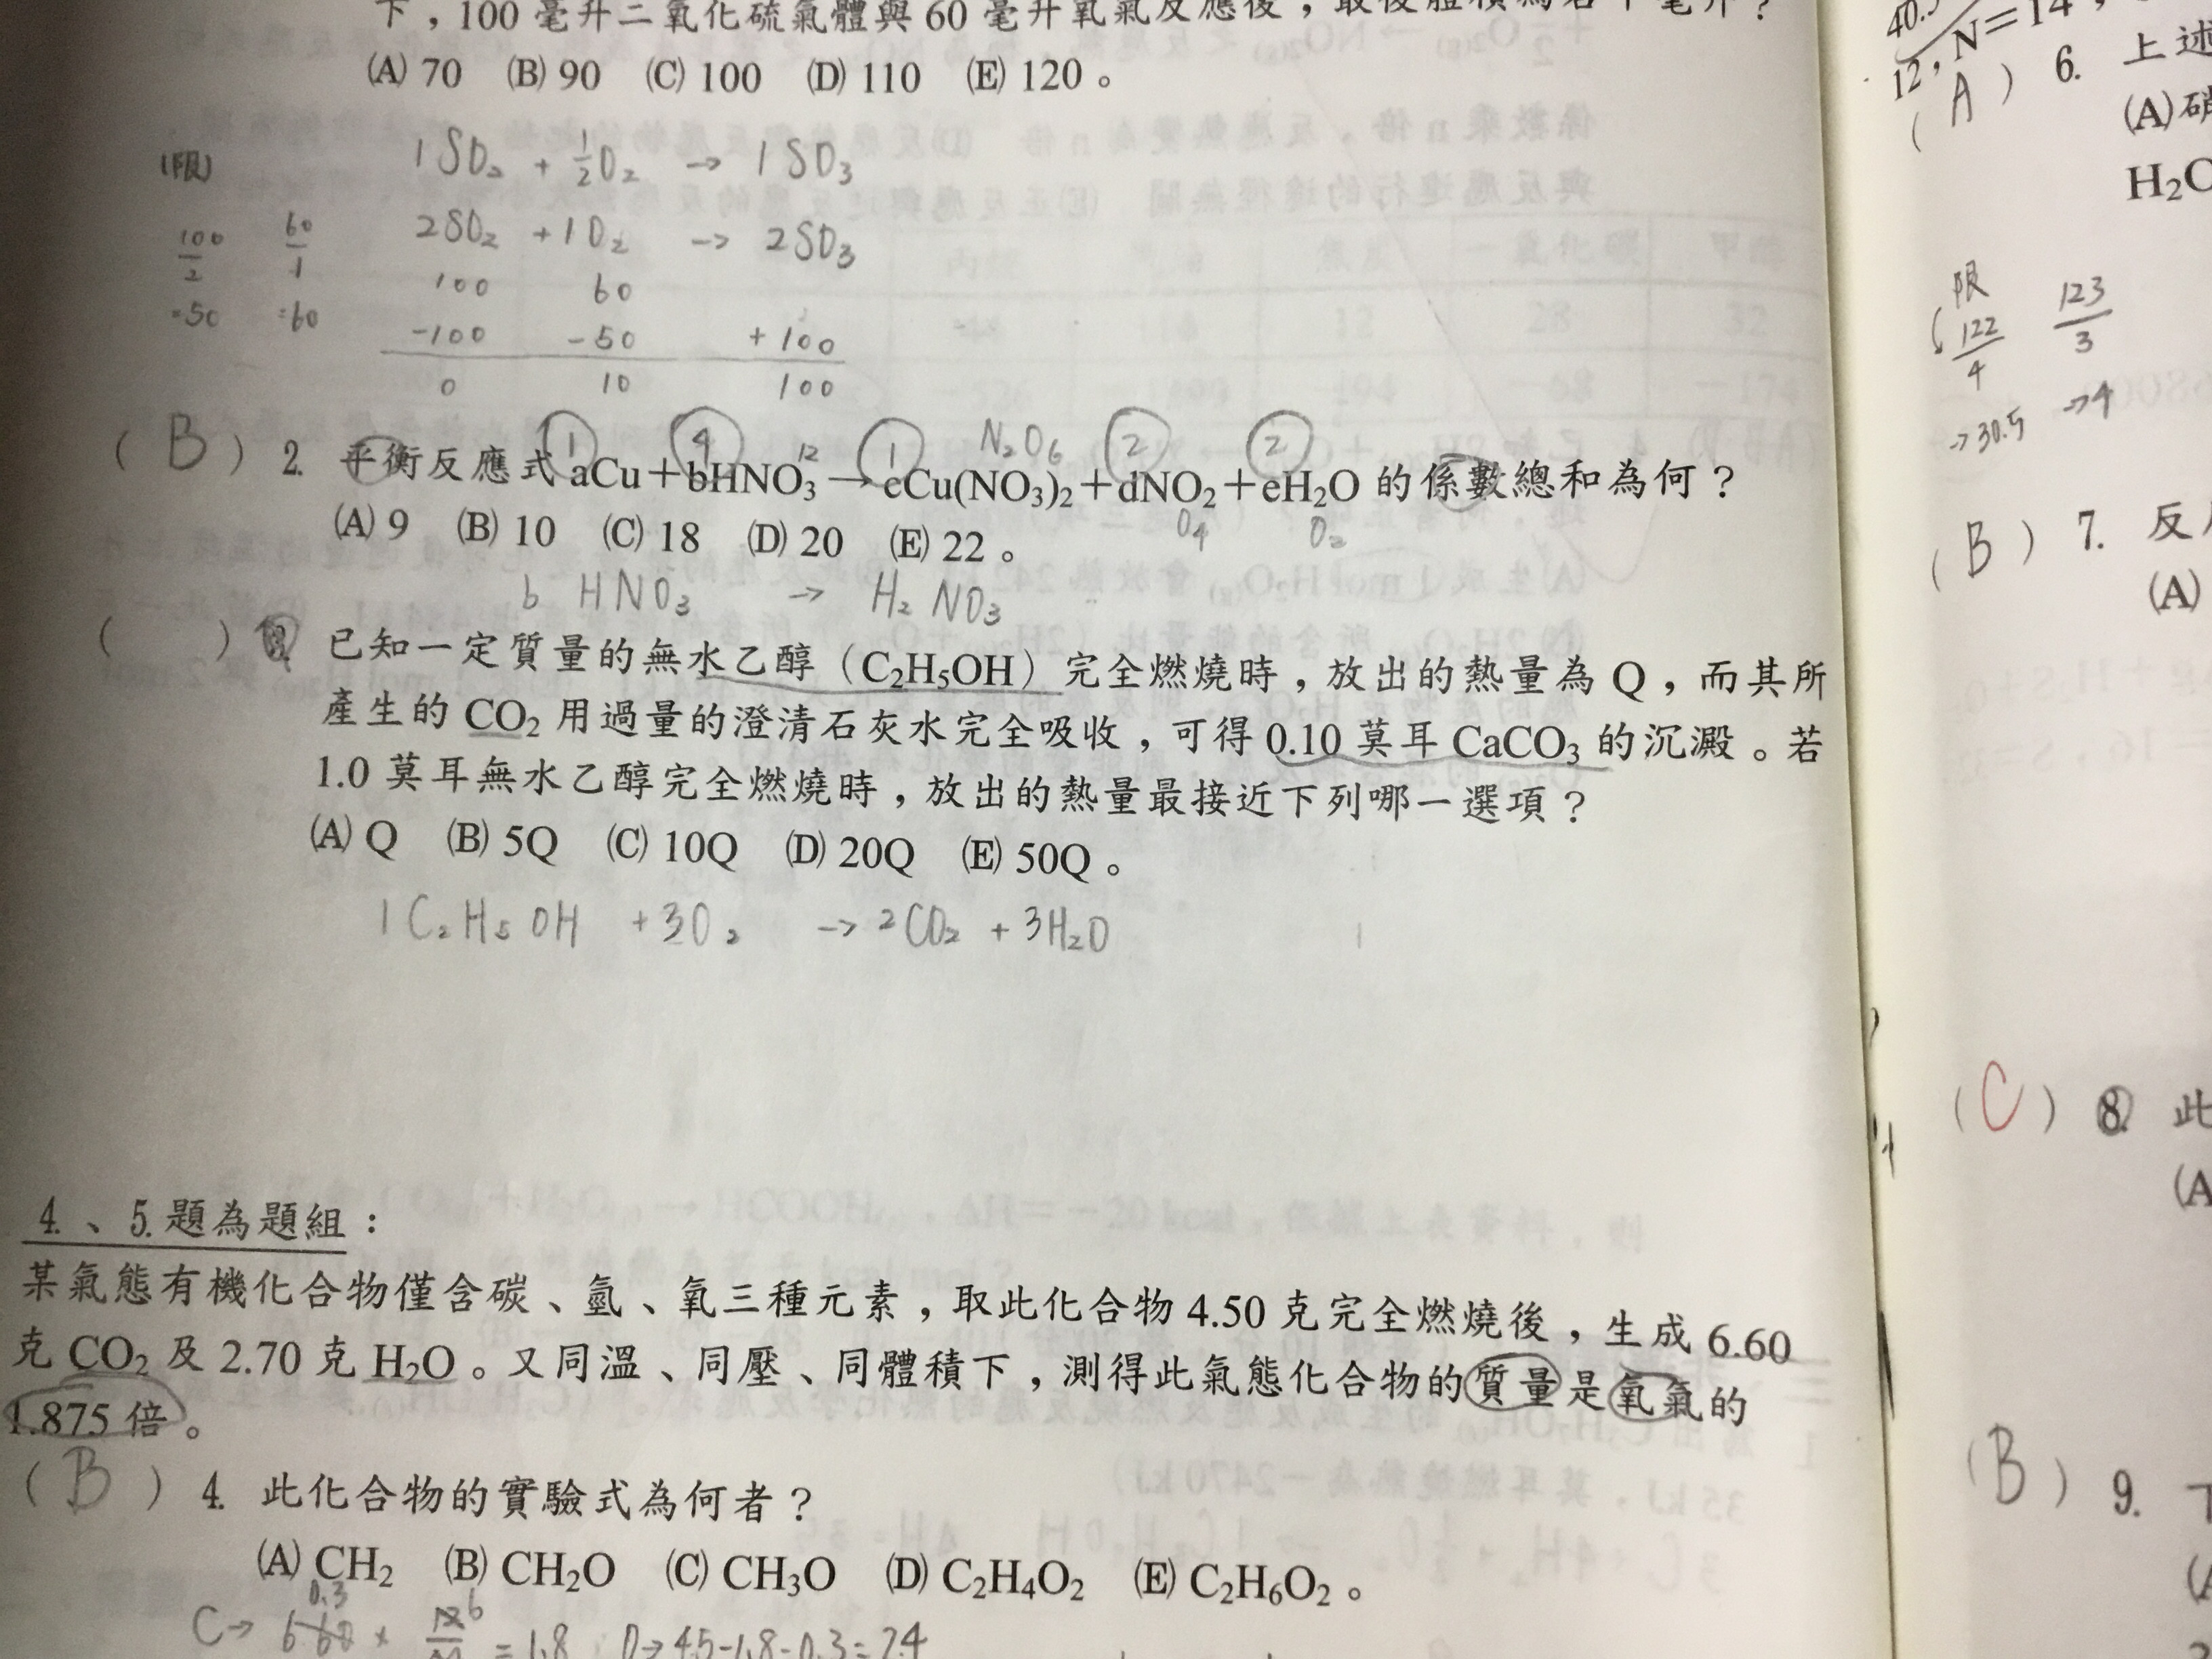 下，100 毫升二氧化硫氣體與 60 毫升氧氣反應後，最後體積為若干毫升？
(A) 70 (B) 90 (C) 100 (D) 110 (E) 120。
(限)
1SO₂ + 1/2 O₂ → 1SO₃
2SO₂ + 1O₂ → 2SO₃
100/2 60/1
=50 =60
100 60
-100 -50 +100
0 10 100
( B ) 2. 平衡反應式 aCu＋bHNO₃→cCu(NO₃)₂＋dNO₂＋eH₂O 的係數總和為何？
1 4 12 1 N₂O₆ 2 2
O₄ O₂
(A) 9 (B) 10 (C) 18 (D) 20 (E) 22。
b HNO₃ → H₂ NO₃
( ) 3. 已知一定質量的無水乙醇（C₂H₅OH）完全燃燒時，放出的熱量為 Q，而其所
產生的 CO₂ 用過量的澄清石灰水完全吸收，可得 0.10 莫耳 CaCO₃ 的沉澱。若
1.0 莫耳無水乙醇完全燃燒時，放出的熱量最接近下列哪一選項？
(A) Q (B) 5Q (C) 10Q (D) 20Q (E) 50Q。
1C₂H₅OH +3O₂ → 2CO₂ + 3H₂O
4.、5.題為題組：
某氣態有機化合物僅含碳、氫、氧三種元素，取此化合物 4.50 克完全燃燒後，生成 6.60
克 CO₂ 及 2.70 克 H₂O。又同溫、同壓、同體積下，測得此氣態化合物的質量是氧氣的
1.875 倍。
( B ) 4. 此化合物的實驗式為何者？
(A) CH₂ (B) CH₂O (C) CH₃O (D) C₂H₄O₂ (E) C₂H₆O₂。
=1.8 O→4.5-1.8-0.3=2.4
12，N＝14，
( A ) 6. 上述
(A)硝
H₂O
限
122/4 123/3
→30.5 →4
( B ) 7. 反
(A)
( C ) 8. 此
(A
( B ) 9. 下